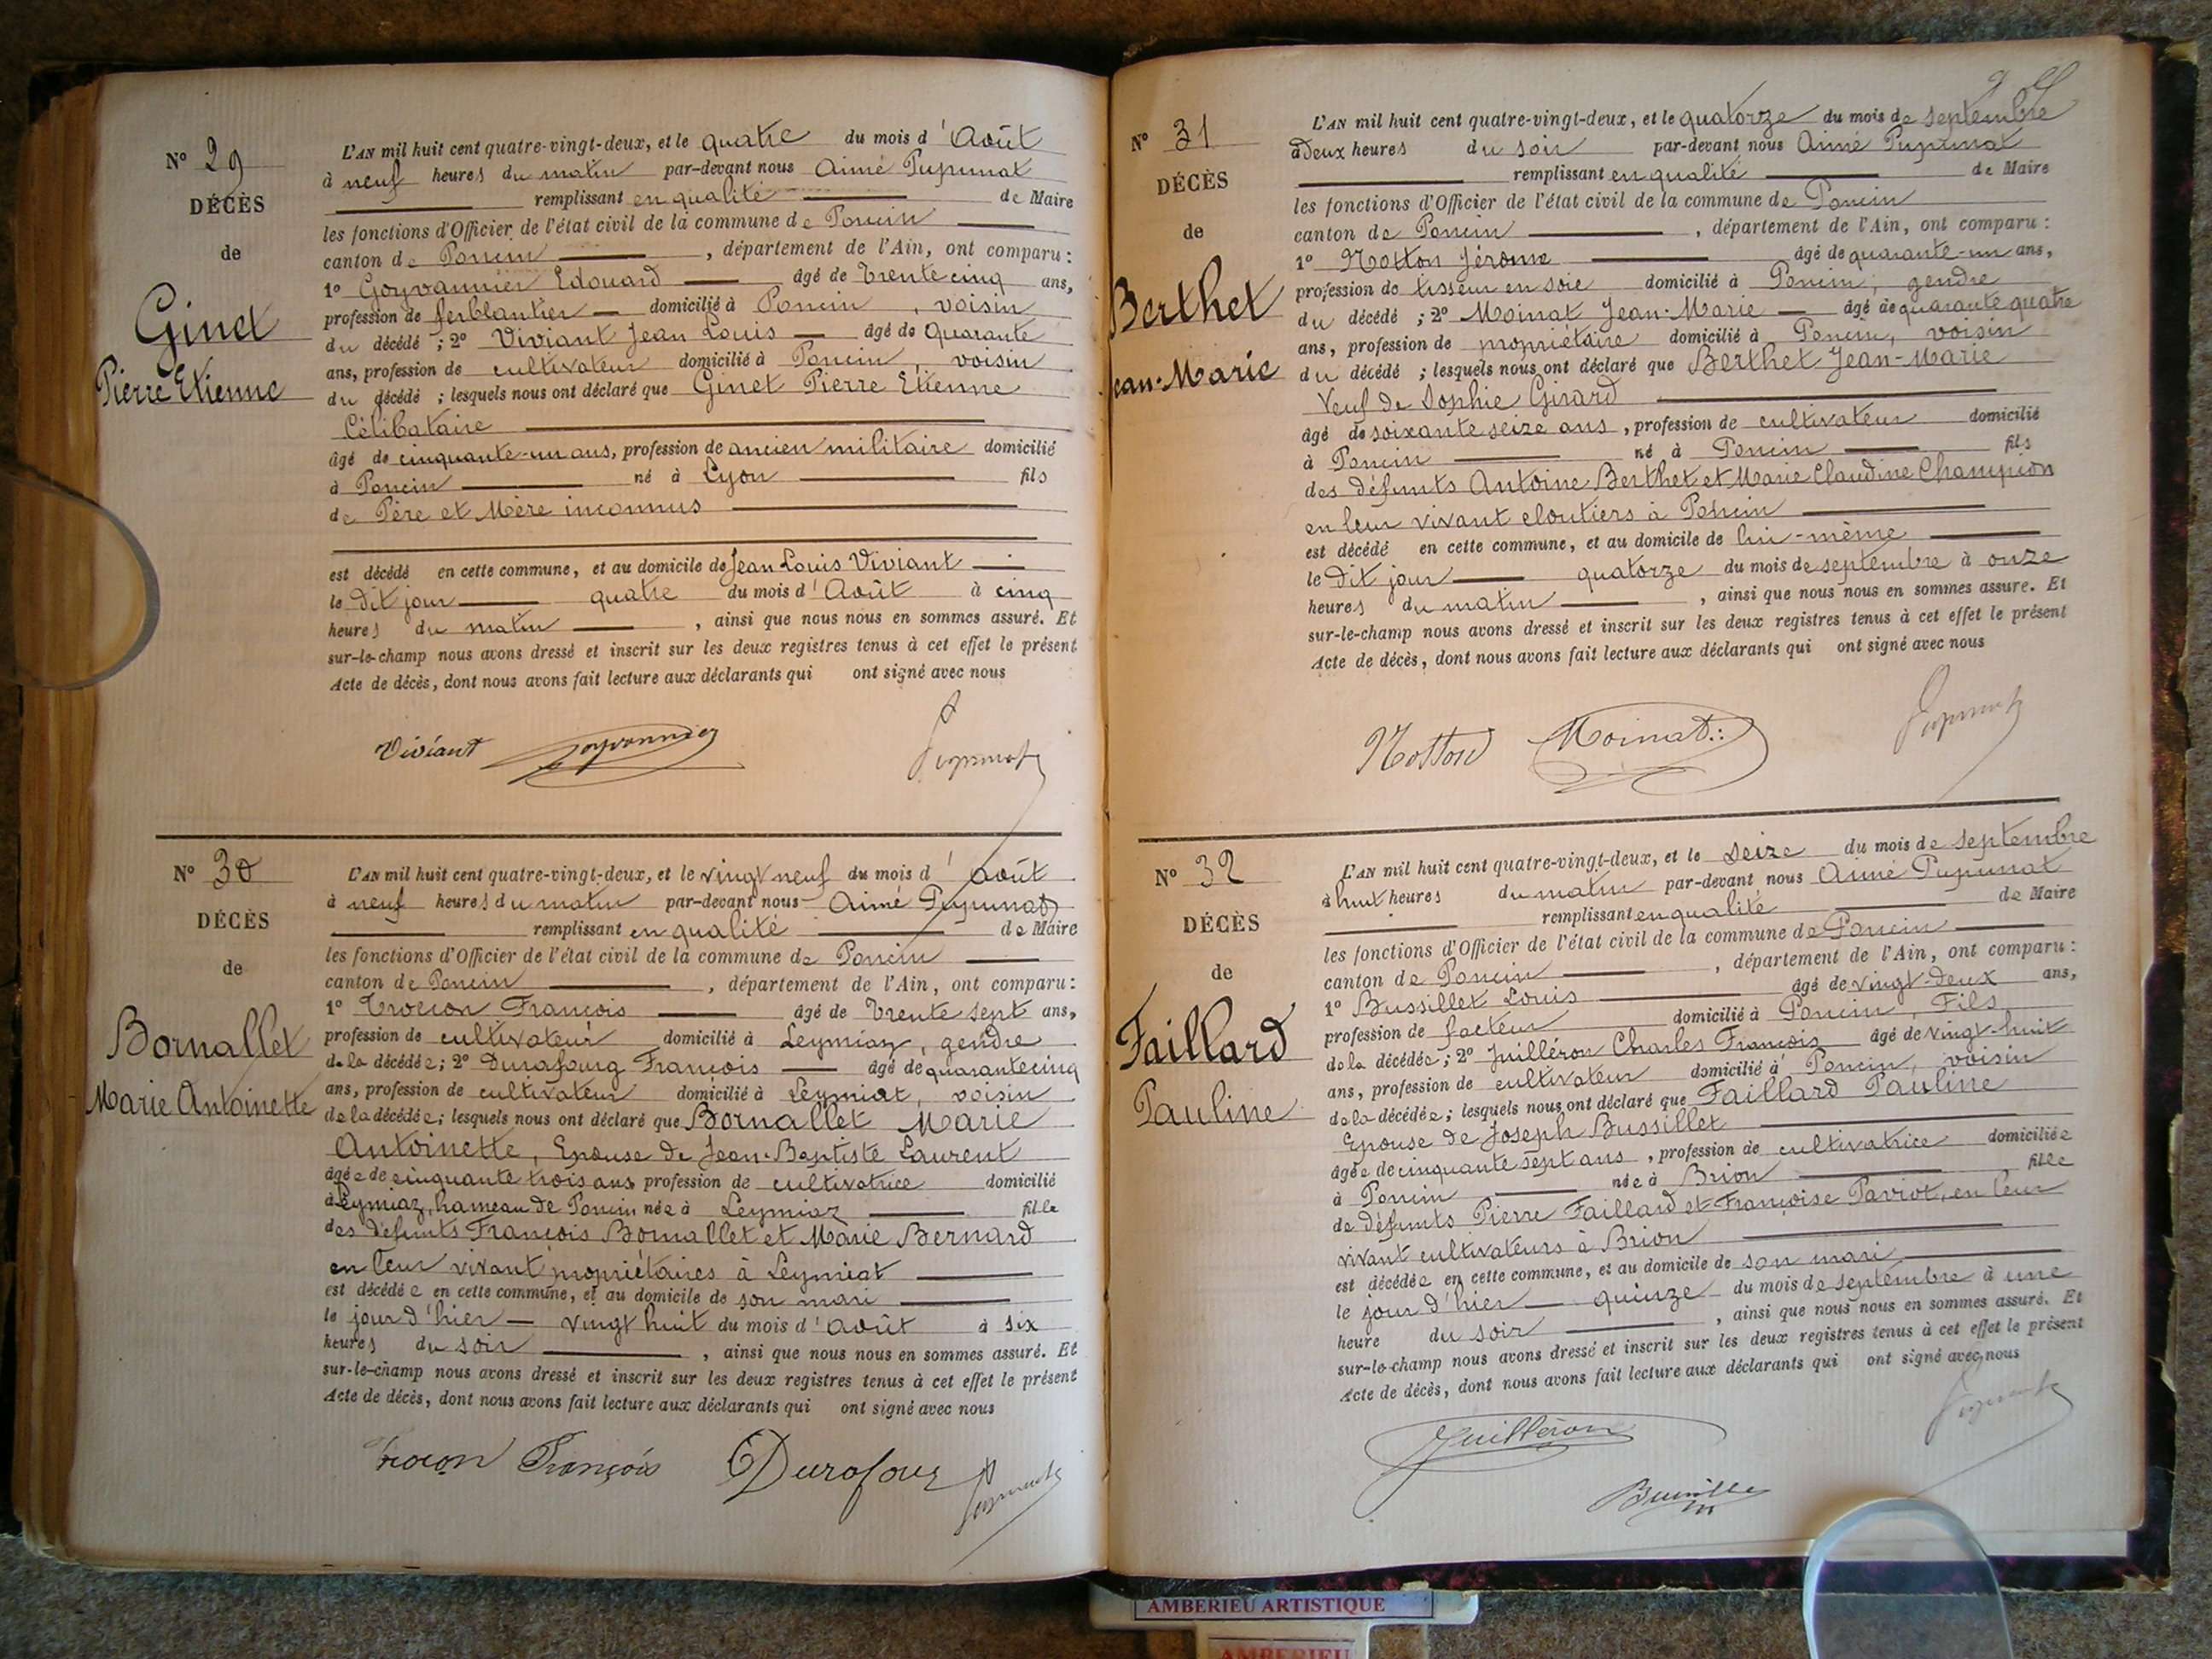 N° 29
DÉCÈS
de
Ginet
Pierre Etienne
L'AN mil huit cent quatre-vingt-deux, et le quatre du mois d'Août
à neuf heures du matin par-devant nous Aimé Pupunat
remplissant en qualité de Maire
les fonctions d'Officier de l'état civil de la commune de Poncin
canton de Poncin, département de l'Ain, ont comparu:
1° Goyvannier Edouard âgé de Trente cinq ans,
profession de ferblantier domicilié à Poncin, voisin
du décédé; 2° Viviant Jean Louis âgé de Quarante
ans, profession de cultivateur domicilié à Poncin, voisin
du décédé; lesquels nous ont déclaré que Ginet Pierre Etienne
Célibataire
âgé de cinquante-un ans, profession de ancien militaire domicilié
à Poncin né à Lyon fils
de Père et Mère inconnus
est décédé en cette commune, et au domicile de Jean Louis Viviant
le dit jour quatre du mois d'Août à cinq
heures du matin, ainsi que nous nous en sommes assuré. Et
sur-le-champ nous avons dressé et inscrit sur les deux registres tenus à cet effet le présent
Acte de décès, dont nous avons fait lecture aux déclarants qui ont signé avec nous
Viviant Goyvannier Pupunat
N° 30
DÉCÈS
de
Bornallet
Marie Antoinette
L'AN mil huit cent quatre-vingt-deux, et le vingt neuf du mois d'août
à neuf heures du matin par-devant nous Aimé Pupunat
remplissant en qualité de Maire
les fonctions d'Officier de l'état civil de la commune de Poncin
canton de Poncin, département de l'Ain, ont comparu:
1° Trocon François âgé de Trente sept ans,
profession de cultivateur domicilié à Leymiaz, gendre
de la décédée; 2° Durafourg François âgé de quarante cinq
ans, profession de cultivateur domicilié à Leymiat, voisin
de la décédée; lesquels nous ont déclaré que Bornallet Marie
Antoinette, Epouse de Jean-Baptiste Laurent
âgée de cinquante trois ans profession de cultivatrice domicilié
à Leymiaz, hameau de Poncin née à Leymiaz fille
des défunts François Bornallet et Marie Bernard
en leur vivant propriétaires à Leymiat
est décédée en cette commune, et au domicile de son mari
le jour d'hier vingt huit du mois d'août à six
heures du soir, ainsi que nous nous en sommes assuré. Et
sur-le-champ nous avons dressé et inscrit sur les deux registres tenus à cet effet le présent
Acte de décès, dont nous avons fait lecture aux déclarants qui ont signé avec nous
Trocon François Durafour Pupunat
N° 31
DÉCÈS
de
Berthet
Jean-Marie
L'AN mil huit cent quatre-vingt-deux, et le quatorze du mois de septembre
à deux heures du soir par-devant nous Aimé Pupunat
remplissant en qualité de Maire
les fonctions d'Officier de l'état civil de la commune de Poncin
canton de Poncin, département de l'Ain, ont comparu:
1° Notton Jérôme âgé de quarante-un ans,
profession de tisseur en soie domicilié à Poncin, gendre
du décédé; 2° Moinat Jean-Marie âgé de quarante quatre
ans, profession de propriétaire domicilié à Poncin, voisin
du décédé; lesquels nous ont déclaré que Berthet Jean-Marie
Veuf de Sophie Girard
âgé de soixante seize ans, profession de cultivateur domicilié
à Poncin né à Poncin fils
des défunts Antoine Berthet et Marie Claudine Champion
en leur vivant cloutiers à Poncin
est décédé en cette commune, et au domicile de lui-même
le dit jour quatorze du mois de septembre à onze
heures du matin, ainsi que nous nous en sommes assuré. Et
sur-le-champ nous avons dressé et inscrit sur les deux registres tenus à cet effet le présent
Acte de décès, dont nous avons fait lecture aux déclarants qui ont signé avec nous
Notton Moinat Pupunat
N° 32
DÉCÈS
de
Faillard
Pauline
L'AN mil huit cent quatre-vingt-deux, et le seize du mois de septembre
à huit heures du matin par-devant nous Aimé Pupunat
remplissant en qualité de Maire
les fonctions d'Officier de l'état civil de la commune de Poncin
canton de Poncin, département de l'Ain, ont comparu:
1° Bussillet Louis âgé de vingt-deux ans,
profession de facteur domicilié à Poncin, Fils
de la décédée; 2° Juilléron Charles François âgé de vingt-huit
ans, profession de cultivateur domicilié à Poncin, voisin
de la décédée; lesquels nous ont déclaré que Faillard Pauline
Epouse de Joseph Bussillet
âgée de cinquante sept ans, profession de cultivatrice domiciliée
à Poncin née à Brion fille
de défunts Pierre Faillard et Françoise Paviot, en leur
vivant cultivateurs à Brion
est décédée en cette commune, et au domicile de son mari
le jour d'hier quinze du mois de septembre à une
heure du soir, ainsi que nous nous en sommes assuré. Et
sur-le-champ nous avons dressé et inscrit sur les deux registres tenus à cet effet le présent
Acte de décès, dont nous avons fait lecture aux déclarants qui ont signé avec nous
Juilléron Pupunat
AMBERIEU ARTISTIQUE
AMBERIEU